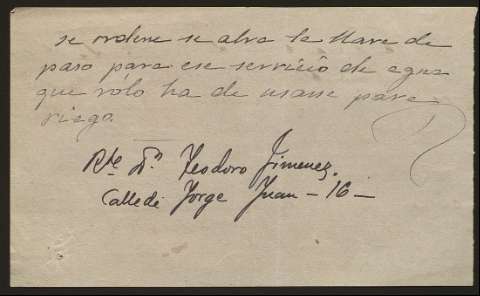 se ordene se abra la llave de
paso para ese servicio de agua
que sólo ha de usarse para
riego.
Rte Dn Teodoro Jimenez.
Calle de Jorge Juan - 16 -